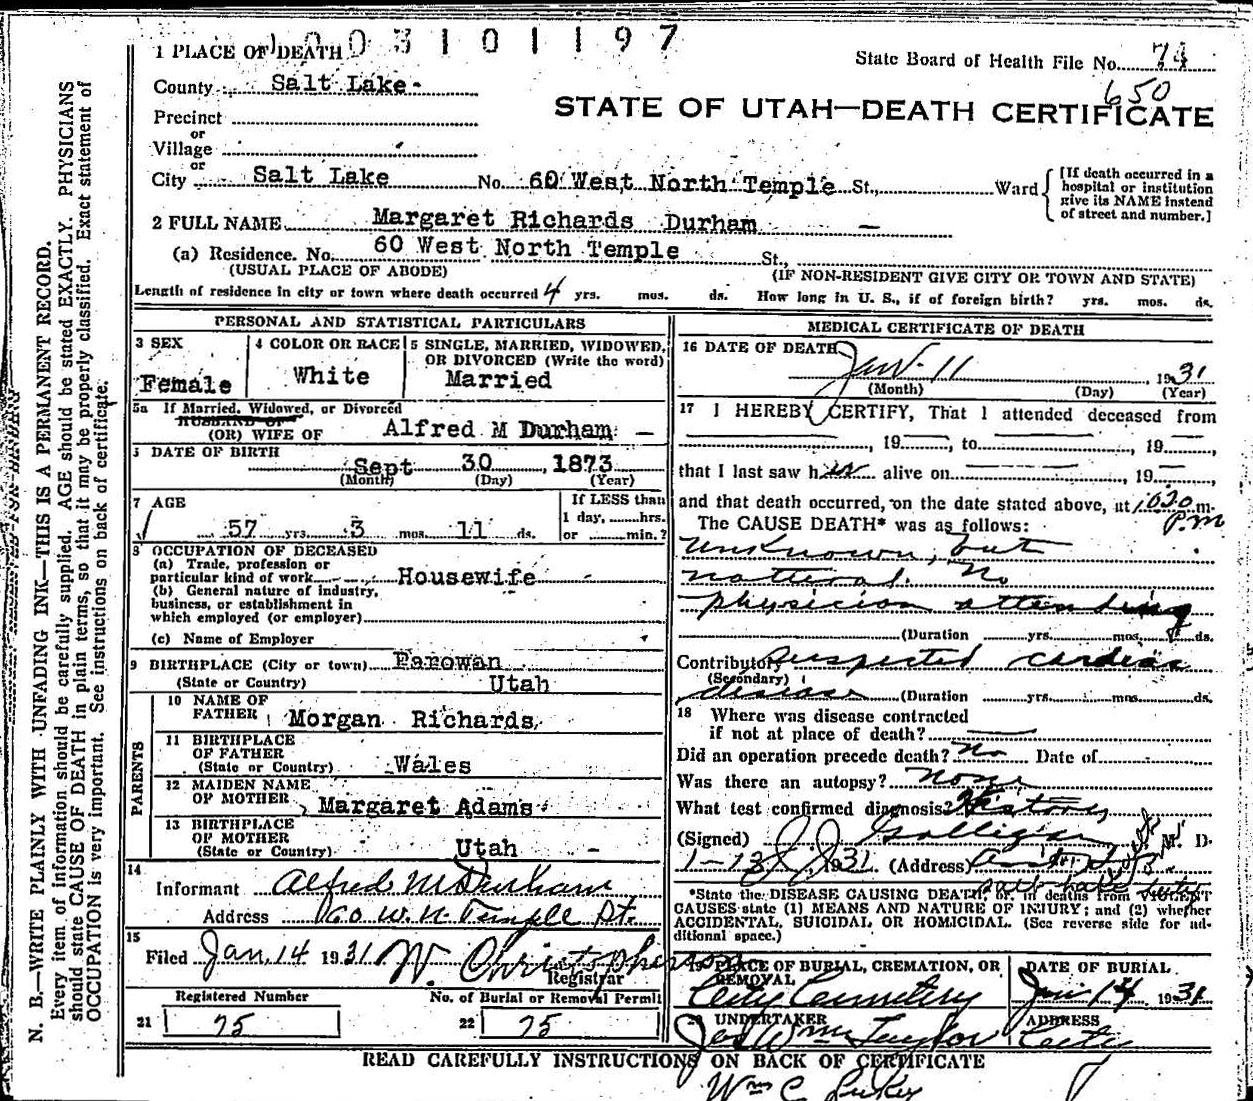 1003101197
1 PLACE OF DEATH
State Board of Health File No. 74
650
County Salt Lake
STATE OF UTAH—DEATH CERTIFICATE
Precinct
or
Village
or
City Salt Lake No. 60 West North Temple St., Ward
[If death occurred in a
hospital or institution
give its NAME instead
of street and number.]
2 FULL NAME Margaret Richards Durham
(a) Residence. No. 60 West North Temple St.,
(USUAL PLACE OF ABODE) (IF NON-RESIDENT GIVE CITY OR TOWN AND STATE)
Length of residence in city or town where death occurred 4 yrs. mos. ds. How long in U. S., if of foreign birth? yrs. mos. ds.
PERSONAL AND STATISTICAL PARTICULARS
3 SEX
Female
4 COLOR OR RACE
White
5 SINGLE, MARRIED, WIDOWED,
OR DIVORCED (Write the word)
Married
5a If Married, Widowed, or Divorced
HUSBAND OF
(OR) WIFE OF Alfred M Durham
DATE OF BIRTH
Sept 30, 1873
(Month) (Day) (Year)
7 AGE
57 yrs. 3 mos. 11 ds.
If LESS than
1 day, hrs.
or min.?
8 OCCUPATION OF DECEASED
(a) Trade, profession or
particular kind of work Housewife
(b) General nature of industry,
business, or establishment in
which employed (or employer)
(c) Name of Employer
9 BIRTHPLACE (City or town) Parowan
(State or Country) Utah
PARENTS
10 NAME OF
FATHER Morgan Richards
11 BIRTHPLACE
OF FATHER
(State or Country) Wales
12 MAIDEN NAME
OF MOTHER Margaret Adams
13 BIRTHPLACE
OF MOTHER
(State or Country) Utah
14
Informant Alfred M Durham
Address 60 W. N. Temple St.
15
Filed Jan. 14 1931 W. Christopherson
Registrar
Registered Number
21 75
No. of Burial or Removal Permit
22 75
MEDICAL CERTIFICATE OF DEATH
16 DATE OF DEATH
Jan. 11, 1931
(Month) (Day) (Year)
17 I HEREBY CERTIFY, That I attended deceased from
, 19 , to , 19
that I last saw h alive on , 19
and that death occurred, on the date stated above, at 1030 m.
P.M
The CAUSE DEATH* was as follows:
Unknown, but
natural. No
physician attending
(Duration yrs. mos. ds.
Contributory suspected cardiac
(Secondary)
disease (Duration yrs. mos. ds.
18 Where was disease contracted
if not at place of death?
Did an operation precede death? No Date of
Was there an autopsy? none
What test confirmed diagnosis? History
(Signed) J J Galligan M. D.
1-13, 1931. (Address)
Salt Lake City
*State the DISEASE CAUSING DEATH, or, in deaths from VIOLENT
CAUSES state (1) MEANS AND NATURE OF INJURY; and (2) whether
ACCIDENTAL, SUICIDAL OR HOMICIDAL. (See reverse side for ad-
ditional space.)
19 PLACE OF BURIAL, CREMATION, OR
REMOVAL
City Cemetery
DATE OF BURIAL
Jan 14 1931
20 UNDERTAKER
Jos Wm Taylor
ADDRESS
City
READ CAREFULLY INSTRUCTIONS ON BACK OF CERTIFICATE
Wm C
N. B.—WRITE PLAINLY WITH UNFADING INK—THIS IS A PERMANENT RECORD.
Every item of information should be carefully supplied. AGE should be stated EXACTLY. PHYSICIANS
should state CAUSE OF DEATH in plain terms, so that it may be properly classified. Exact statement of
OCCUPATION is very important. See instructions on back of certificate.